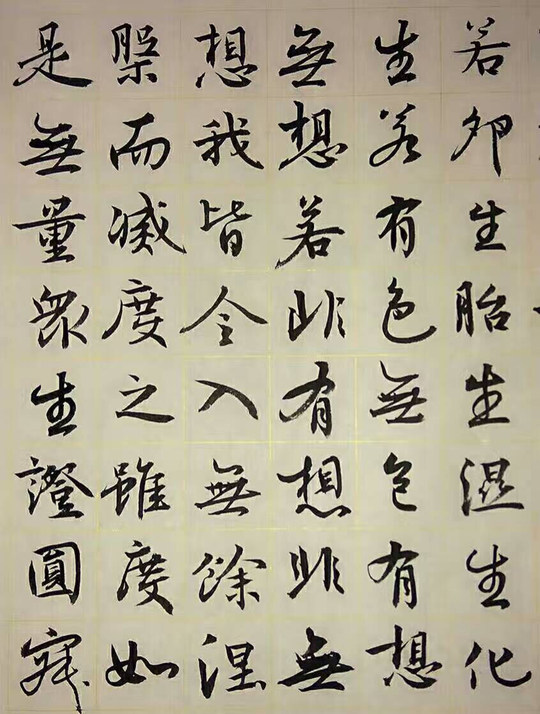 若卵生胎生濕生化
生若有色無色有想
無想若非有想非無
想我皆令入無餘涅
槃而滅度之雖度如
是無量眾生證圓寂